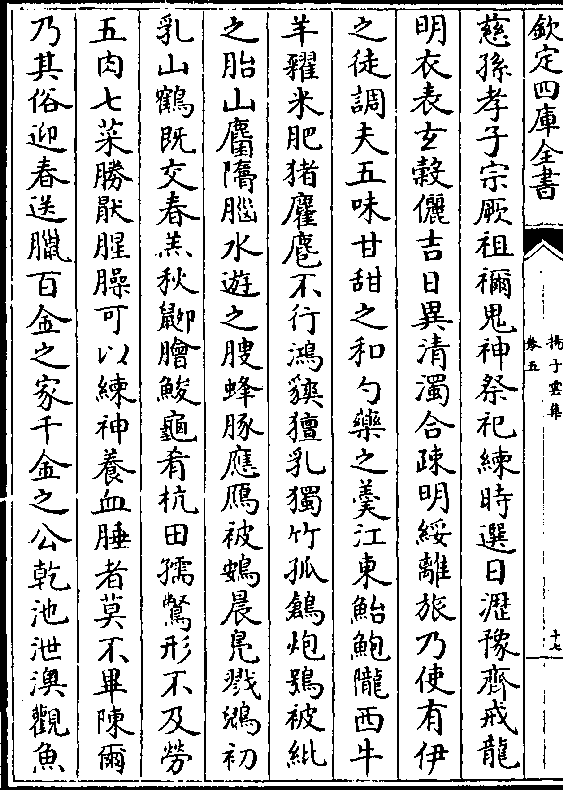 欽定四庫全書
揚子雲集
卷五
十七
慈孫孝子宗厥祖禰鬼神祭祀練時選日瀝豫齊戒龍
明衣表玄穀儷吉日異清濁合疎明綏離旅乃使有伊
之徒調夫五味甘甜之和勺藥之羹江東鮐鮑隴西牛
羊糴米肥猪麆麀不行鴻㺉獞乳獨竹孤鶬炮鴞被紕
之胎山麕髓腦水遊之腴蜂豚應鴈被鴳晨鳧戮鶂初
乳山鶴既交春羔秋䶉膾鮻龜肴杭田孺鷩形不及勞
五肉七菜勝猒腥臊可以練神養血腄者莫不畢陳爾
乃其俗迎春送臘百金之家千金之公乾池泄澳觀魚